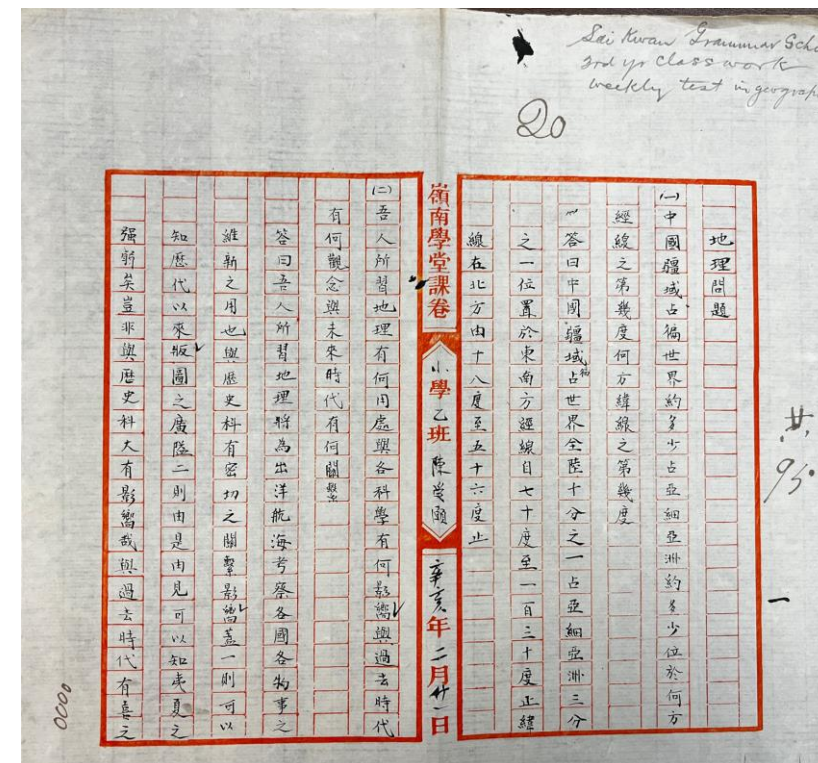 Sai Kwan Grammar Scho
3rd yr class work
weekly test in geograph
20
地理問題
(一)中國疆域占徧世界約多少占亞細亞洲約多少位於何方
經線之第幾度何方緯線之第幾度
答曰中國疆域占徧世界全陸十分之一占亞細亞洲三分
之一位置於東南方經線自七十度至一百三十度止緯
線在北方由十八度至五十六度止
嶺南學堂課卷
小學乙班 陳
辛亥年二月廿一日
(二)吾人所習地理有何用處與各科學有何影嚮與過去時代
有何觀念與未來時代有何關繫
答曰吾人所習地理將為出洋航海考察各國各物事之
維新之用也與歷史科有密切之關繫影嚮蓋一則可以
知歷代以來版圖之廣隘二則由是由見可以知夷夏之
强弱矣豈非與歷史科大有影嚮哉與過去時代有喜之
95
一
0000